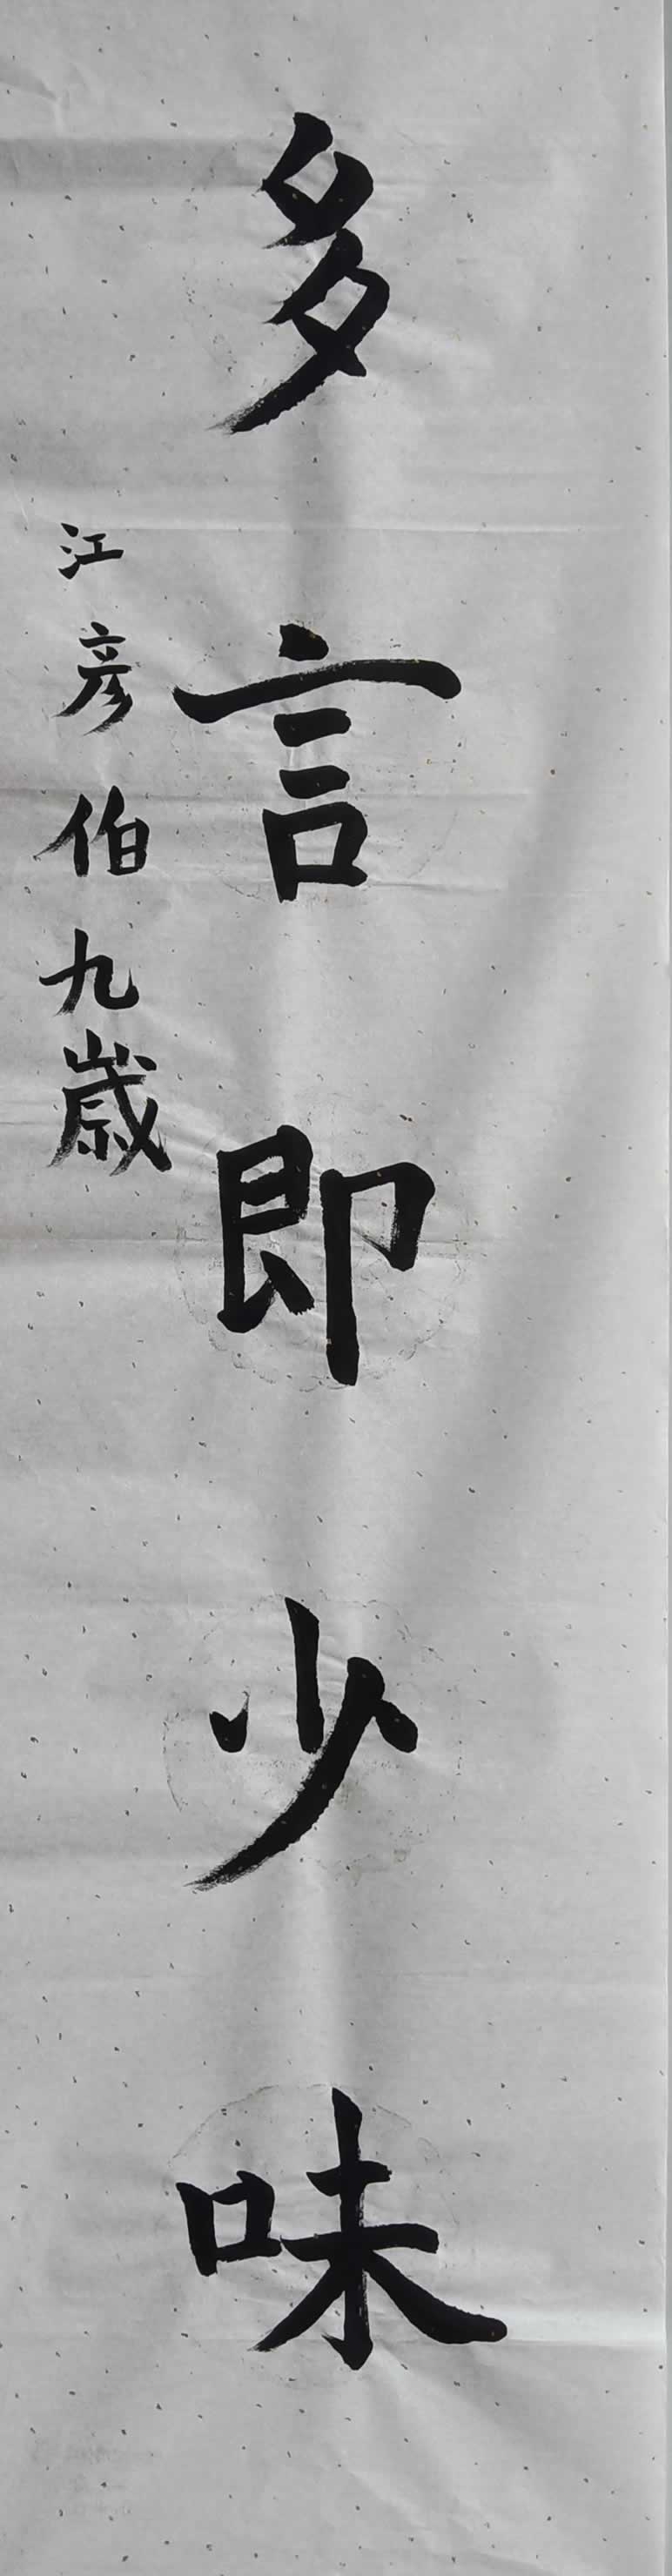 多言即少味
江彦伯九歳